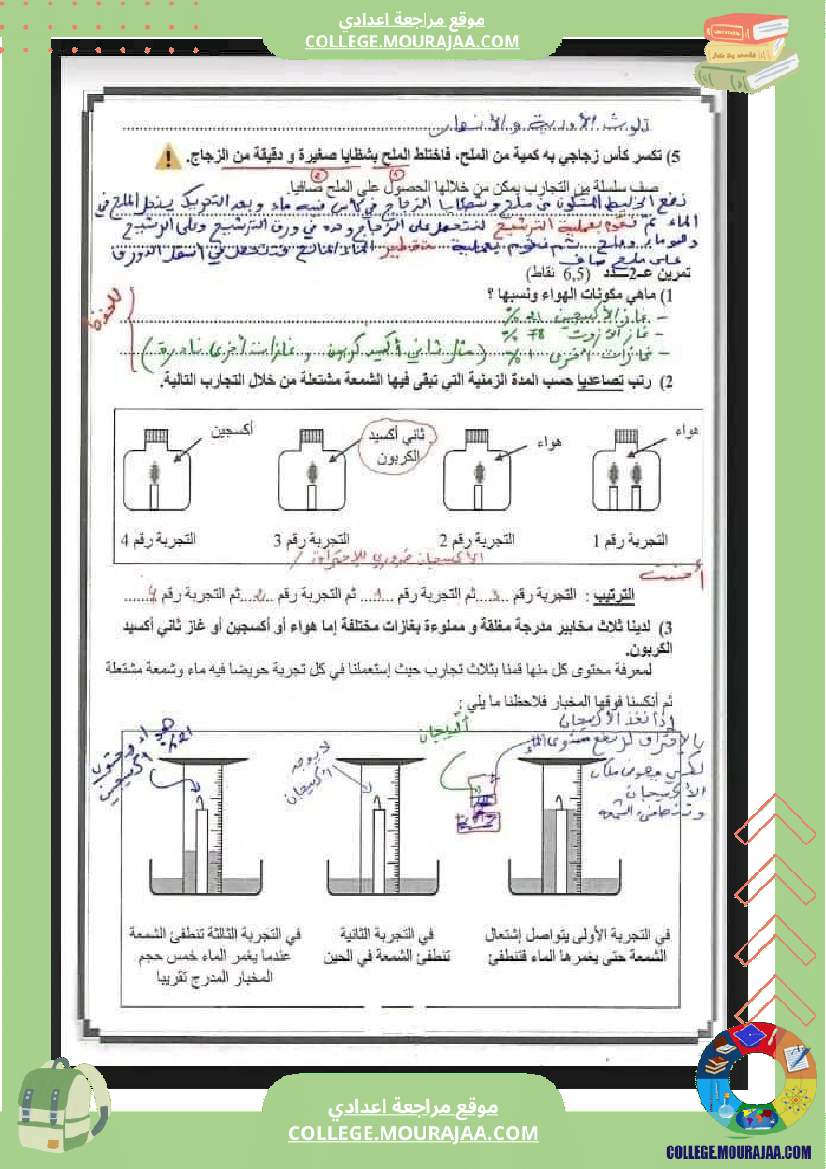 موقع مراجعة اعدادي
COLLEGE.MOURAJAA.COM
تلوث الأودية و الأنهار
5) تكسر كأس زجاجي به كمية من الملح، فاختلط الملح بشظايا صغيرة و دقيقة من الزجاج.
صف سلسلة من التجارب يمكن من خلالها الحصول على الملح صافيا.
نضع الخليط المتكون من ملح و شظايا الزجاج في كأس فيه ماء و بعد التحريك ينحل الملح في
الماء ثم نقوم بعملية الترشيح لنتحصل على الزجاج وحده في ورق الترشيح وعلى الرشيح
وهو ماء وملح ثم نقوم بعملية تقطير الماء المالح فنتحصل في أسفل الدورق
على ملح صاف
تمرين عـ2ـدد (6,5 نقاط)
1) ماهي مكونات الهواء ونسبها ؟
للحفظ
- غاز الأكسيجين 21 %
- غاز الآزوت 78 %
- غازات أخرى 1 % (مثل ثاني أكسيد كربون و غازات أخرى نادرة)
2) رتب تصاعديا حسب المدة الزمنية التي تبقى فيها الشمعة مشتعلة من خلال التجارب التالية.
هواء
هواء
ثاني أكسيد الكربون
أكسجين
التجربة رقم 1
التجربة رقم 2
التجربة رقم 3
التجربة رقم 4
الأكسيجان ضروري للإحتراق
أحسنت
الترتيب : التجربة رقم ..3.. ثم التجربة رقم ..1.. ثم التجربة رقم ..2.. ثم التجربة رقم ..4..
3) لدينا ثلاث مخابير مدرجة مغلقة و مملوءة بغازات مختلفة إما هواء أو أكسجين أو غاز ثاني أكسيد
الكربون.
لمعرفة محتوى كل منها قمنا بثلاث تجارب حيث إستعملنا في كل تجربة حوضا فيه ماء وشمعة مشتعلة
ثم أنكسنا فوقها المخبار فلاحظنا ما يلي :
إذا نفذ الأكسيجان
بالإحتراق يرتفع مستوى الماء
الأكسيجان
أكسيجان
لا يوجد
أكسيجان
هواء
21%
في التجربة الأولى يتواصل إشتعال
الشمعة حتى يغمرها الماء فتنطفئ
في التجربة الثانية
تنطفئ الشمعة في الحين
في التجربة الثالثة تنطفئ الشمعة
عندما يغمر الماء خمس حجم
المخبار المدرج تقريبا
موقع مراجعة اعدادي
COLLEGE.MOURAJAA.COM
COLLEGE.MOURAJAA.COM